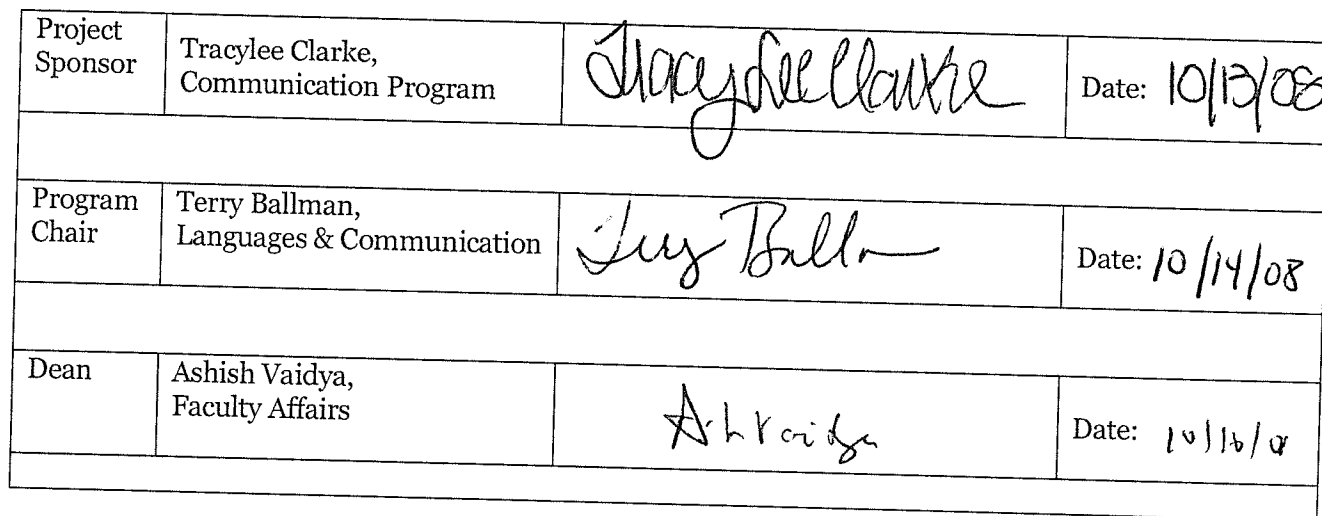 Project
Sponsor
Tracylee Clarke,
Communication Program
TracyLee Clarke
Date: 10/13/08
Program
Chair
Terry Ballman,
Languages & Communication
Terry Ballman
Date: 10/14/08
Dean
Ashish Vaidya,
Faculty Affairs
Date: